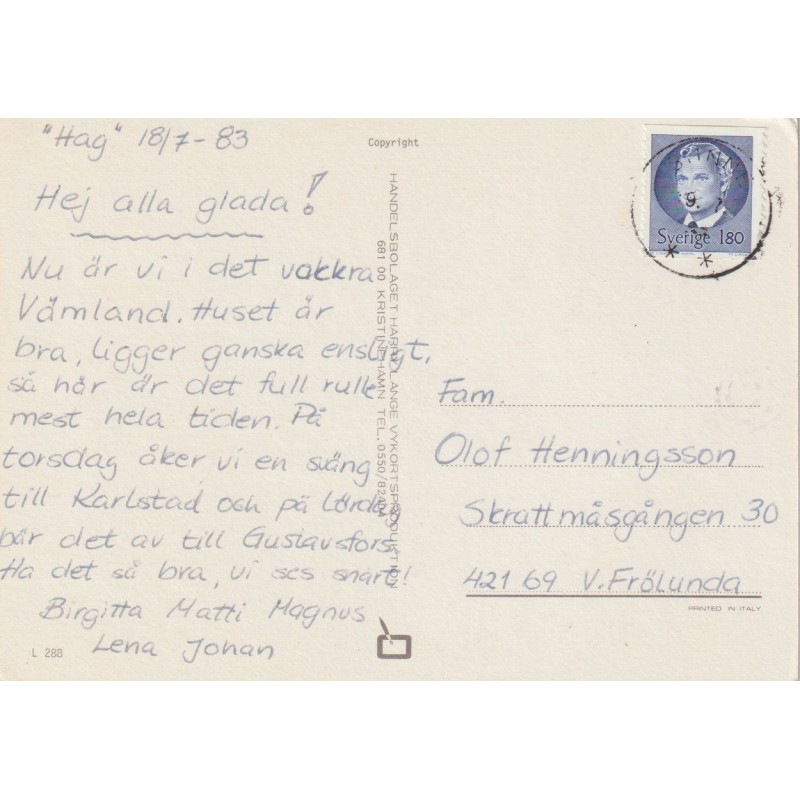 "Hag" 18/7-83
Hej alla glada!
Nu är vi i det vackra
Värmland. Huset är
bra, ligger ganska ensligt,
så här är det full rulle
mest hela tiden. På
torsdag åker vi en sväng
till Karlstad och på lördag
bär det av till Gustavsfors.
Ha det så bra, vi ses snart!
Birgitta Matti Magnus
Lena Johan
L 288
Copyright
HANDELSBOLAGET HARRY LANGE VYKORTSPRODUKTION
681 00 KRISTINEHAMN TEL. 0550/82404
Sverige 180
Fam.
Olof Henningsson
Skrattmåsgången 30
421 69 V. Frölunda
PRINTED IN ITALY